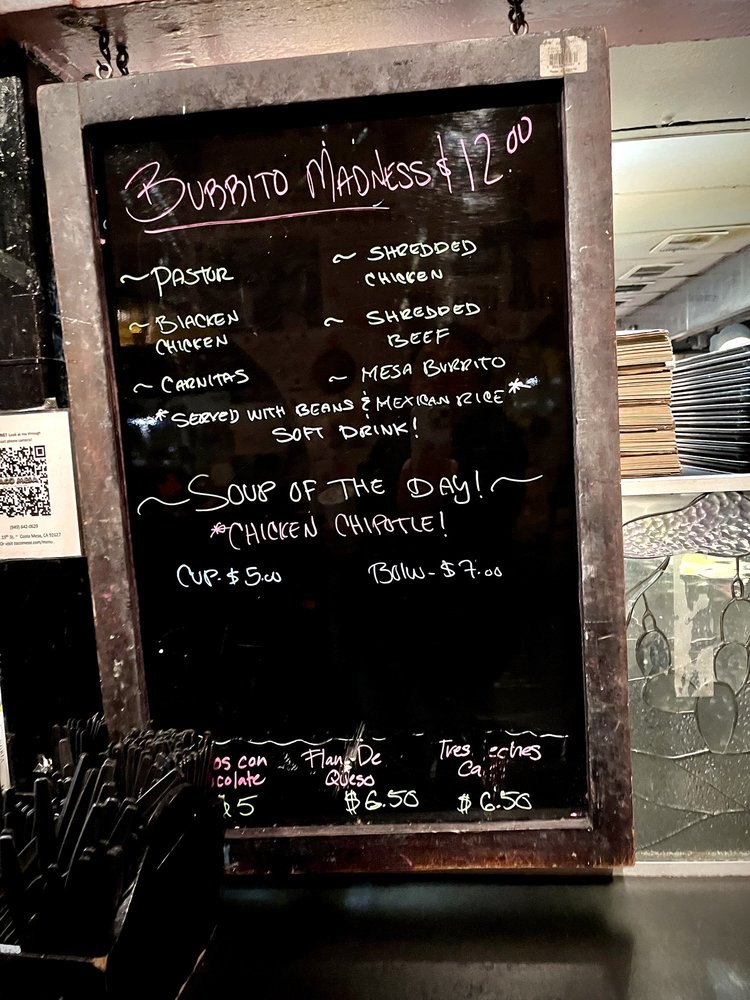 BURRITO MADNESS $12.00
~ PASTOR
~ SHREDDED
CHICKEN
~ BLACKEN
CHICKEN
~ SHREDDED
BEEF
~ CARNITAS
~ MESA BURRITO
*SERVED WITH BEANS & MEXICAN RICE*
SOFT DRINK!
~SOUP OF THE DAY!~
*CHICKEN CHIPOTLE!
CUP-$5.00
BOLW-$7.00
con
$5
Flan De
Queso
$6.50
Tres
$6.50
Look at me through
(949) 642-0629
19th St. ~ Costa Mesa, CA 92627